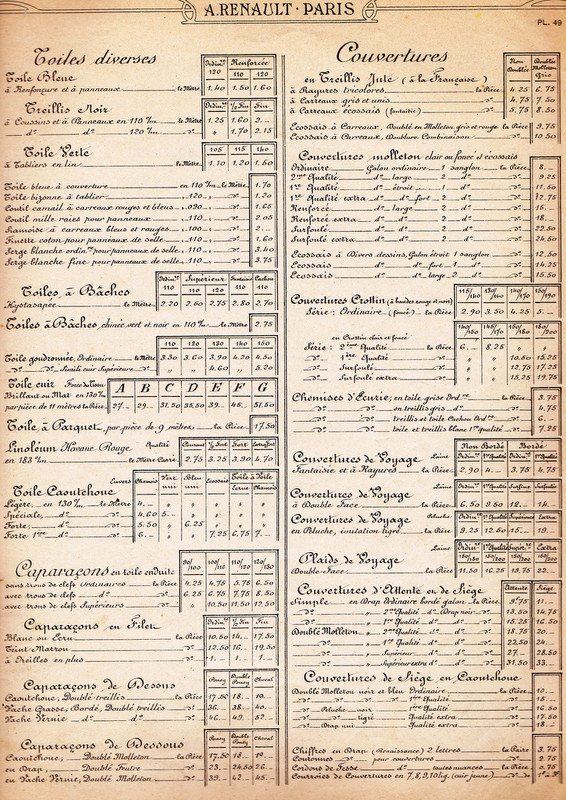 A. RENAULT · PARIS
PL. 49
Toiles diverses
Ordin.re Renforcée
120 110 120
Toile Bleue
à Renfonçure et à panneaux le Mètre 1.40 1.50 1.60
Treillis Noir
Ordin.re 1/2 Fin Fin
à Coussins et à Panneaux en 110 c/m le Mètre 1.25 1.60 2.—
d° d° 120 c/m d° " 1.70 2.15
Toile Verte
105 115 140
à Tabliers en lin le Mètre 1.10 1.20 1.60
Toile bleue à couverture en 110 c/m le Mètre 1.70
Toile bizonne à tablier 120
Coutil camail à carreaux rouges et bleus 1.65
Coutil mille raies pour panneaux 110 2.05
Ramoise à carreaux bleus et rouges 100 2.—
Finette coton pour panneaux de selle 110 1.60
Serge blanche ordin.re pour panneaux de selle 110 3.40
Serge blanche fine pour panneaux de selle 110 3.75
Toiles à Bâches
Ordin.re Supérieur Cachou
110 110 120 110 110
le Mètre 2.20 2.60 2.75 2.80 2.70
Toiles à Bâches, chinée vert et noir en 110 c/m 2.75
110 120 140 150
Toile goudronnée, Ordinaire le Mètre 3.30 3.60 3.90 4.20 4.50
d° Supérieure d° " " 4.60 " 5.20
Toile cuir Force du Tissu A B C D E F G
Brillant ou Mat en 130 c/m
par pièce de 11 mètres la Pièce 27.— 29.— 31.50 35.50 39.— 45.— 51.50
Toile à Parquet, par pièce de 9 mètres la Pièce 17.50
Linoléum Havane Rouge Qualité Courant 1/2 Fort Fort
en 183 c/m le Mètre Carré 2.75 3.25 3.90 4.70
Toile Caoutchouc
Envers Chamois Vert uni Bleu uni Ecossais Toile à Toile
Ecrue Chamois
Légère, en 130 c/m le Mètre 4.— " " " " "
Spéciale, d° d° 4.60 5.— " " " "
Forte, d° d° 5.50 " 6.25 " " "
Forte 1ère d° d° 6.— " " 7.25 6.75 7.—
Caparaçons en toile enduite
90/100 100/110 110/120 120/130
sans trous de clefs Ordinaires la Pièce 4.25 4.75 5.75 6.50
avec trous de clefs d° d° 6.25 6.75 7.75 8.50
avec trous de clefs Supérieurs d° " 10.50 11.50 12.50
Caparaçons en Filet
Ordin.re 1/2 Fin Fin
Blanc ou Écru la Pièce 10.50 14.— 17.50
Teint-Marron d° 12.50 16.— 19.50
à Oreilles en plus d° 1.— 1.— 1.—
Caparaçons de Dessus
Poney Double Poney Cheval
Caoutchouc, Doublé treillis la Pièce 17.50 18.— 19.—
Vache Grasse, Bordé, Doublé treillis d° 36.— 38.— 40.—
Vache Vernie d° d° d° 46.— 49.— 52.—
Caparaçons de Dessous
Poney Double Poney Cheval
Caoutchouc, Doublé Molleton la Pièce 17.50 18.— 19.—
en Drap, Doublé Feutre d° 23.— 24.50 26.—
en Vache Vernie, Doublé Molleton d° 39.— 42.— 45.—
Couvertures
Non Doublée Doublée Molleton Gris
en Treillis Jute (à la Française)
à Rayures tricolores la Pièce 4.25 6.75
à Carreaux gris et unis d° 4.75 7.50
à Carreaux écossais (fantaisie) d° 5.75 8.50
Écossais à Carreaux, Doublé en Molleton gris et rouge la Pièce 9.75
Écossais à Carreaux, Doublure Combinaison d° 10.50
Couvertures molleton clair ou foncé et écossais
Ordinaire Galon ordinaire 1 sanglon la Pièce 8.—
2ème Qualité d° large 2 d° d° 9.25
1ère Qualité d° étroit 1 d° d° 11.50
1ère Qualité extra d° d° fort 2 d° d° 12.75
Renforcé d° large 2 d° d° 15.—
Renforcé extra d° d° 2 d° d° 18.—
Surfoulé d° d° 2 d° d° 22.50
Surfoulé extra d° d° 2 d° d° 24.50
Écossais à Divers dessins, Galon étroit 1 sanglon d° 12.50
Écossais d° d° fort 1 d° d° 14.25
Écossais d° d° large 2 d° d° 15.50
Couvertures Crottin (à bandes rouge et noir)
115/140 130/160 140/170 150/190
Série: Ordinaire (foncé) la Pièce 2.90 3.50 4.25 5.—
en Crottin clair et foncé
140/160 145/175 150/180 160/200
Série: 2ème Qualité d° 6.— 8.25 " "
d° 1ère Qualité d° " " 10.50 15.25
d° Surfoulé d° " " 12.75 17.25
d° Surfoulé extra d° " " 15.25 19.75
Chemises d'Écurie, en toile grise Ord.re la Pièce 3.75
d° d° en treillis gris d° 4.75
d° d° treillis et toile Cachou Ord.re d° 6.—
d° d° toile et treillis blanc 1ère qualité d° 7.25
Non Bordé Bordé
Couvertures de Voyage Laine
Fantaisie et à Rayures la Pièce 2.90 4.— 3.75 4.75
Couvertures de Voyage Laine
à Double Face la Pièce 6.50 9.50 12.— 14.—
Couvertures de Voyage Peluche
en Peluche, imitation tigre la Pièce 9.25 12.50 15.— 19.—
Plaids de Voyage Laine
Double-Face la Pièce 11.50 16.25 19.75 22.—
Couvertures d'Attente en de Siège
Attente Siège
Simple en Drap Ordinaire bordé galon la Pièce 9.75 11.—
d° " 2ème Qualité d° Drap noir d° 13.50 14.75
d° " 1ère Qualité d° d° d° 15.25 16.50
Doublé Molleton " Ordinaire d° d° d° 18.75 20.—
d° " 1ère Qualité d° d° d° 22.50 24.—
d° " Supérieur d° d° d° 27.— 28.50
d° " Supérieur extra d° d° d° 31.50 33.—
Couvertures de Siège en Caoutchouc
Doublé Molleton noir et bleu Ordinaire la Pièce 10.—
d° d° d° 1ère Qualité d° 15.—
d° Peluche noir 1ère Qualité d° 16.50
d° d° tigré Qualité extra d° 17.50
d° Drap uni Qualité extra d° 18.—
Chiffres en Drap (Renaissance) 2 lettres la Paire 3.75
Couronnes d° pour couvertures d° 2.75
Cordons de Fesse d° toutes nuances la Pièce 0.75
Courroies de Couvertures en 7, 8, 9, 10 lig. (cuir jaune) d° 1.s à 3.s